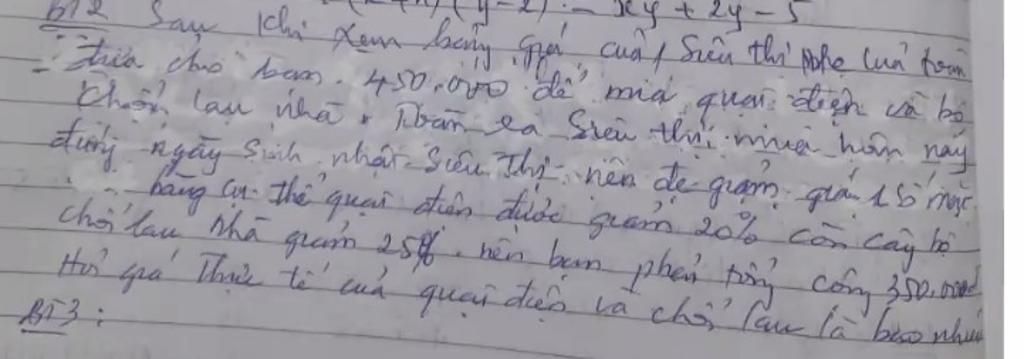 (y-2) = xy + 2y - 5
BT2 Sau khi xem bảng giá của 1 siêu thị mẹ của
đưa cho bạn 450.000 để mua quạt điện và bộ
chổi lau nhà. siêu thị mua hôn nay
đúng ngày sinh nhật siêu thị nên đẹ giảm giá 1 số mặt
hàng cụ thể quạt điện được giảm 20% còn cây bộ
chổi lau nhà giảm 25% nên bạn phải tổng cộng 350.000đ
Hỏi giá thực tế của quạt điện và chổi lau là bao nhiu
BT3: